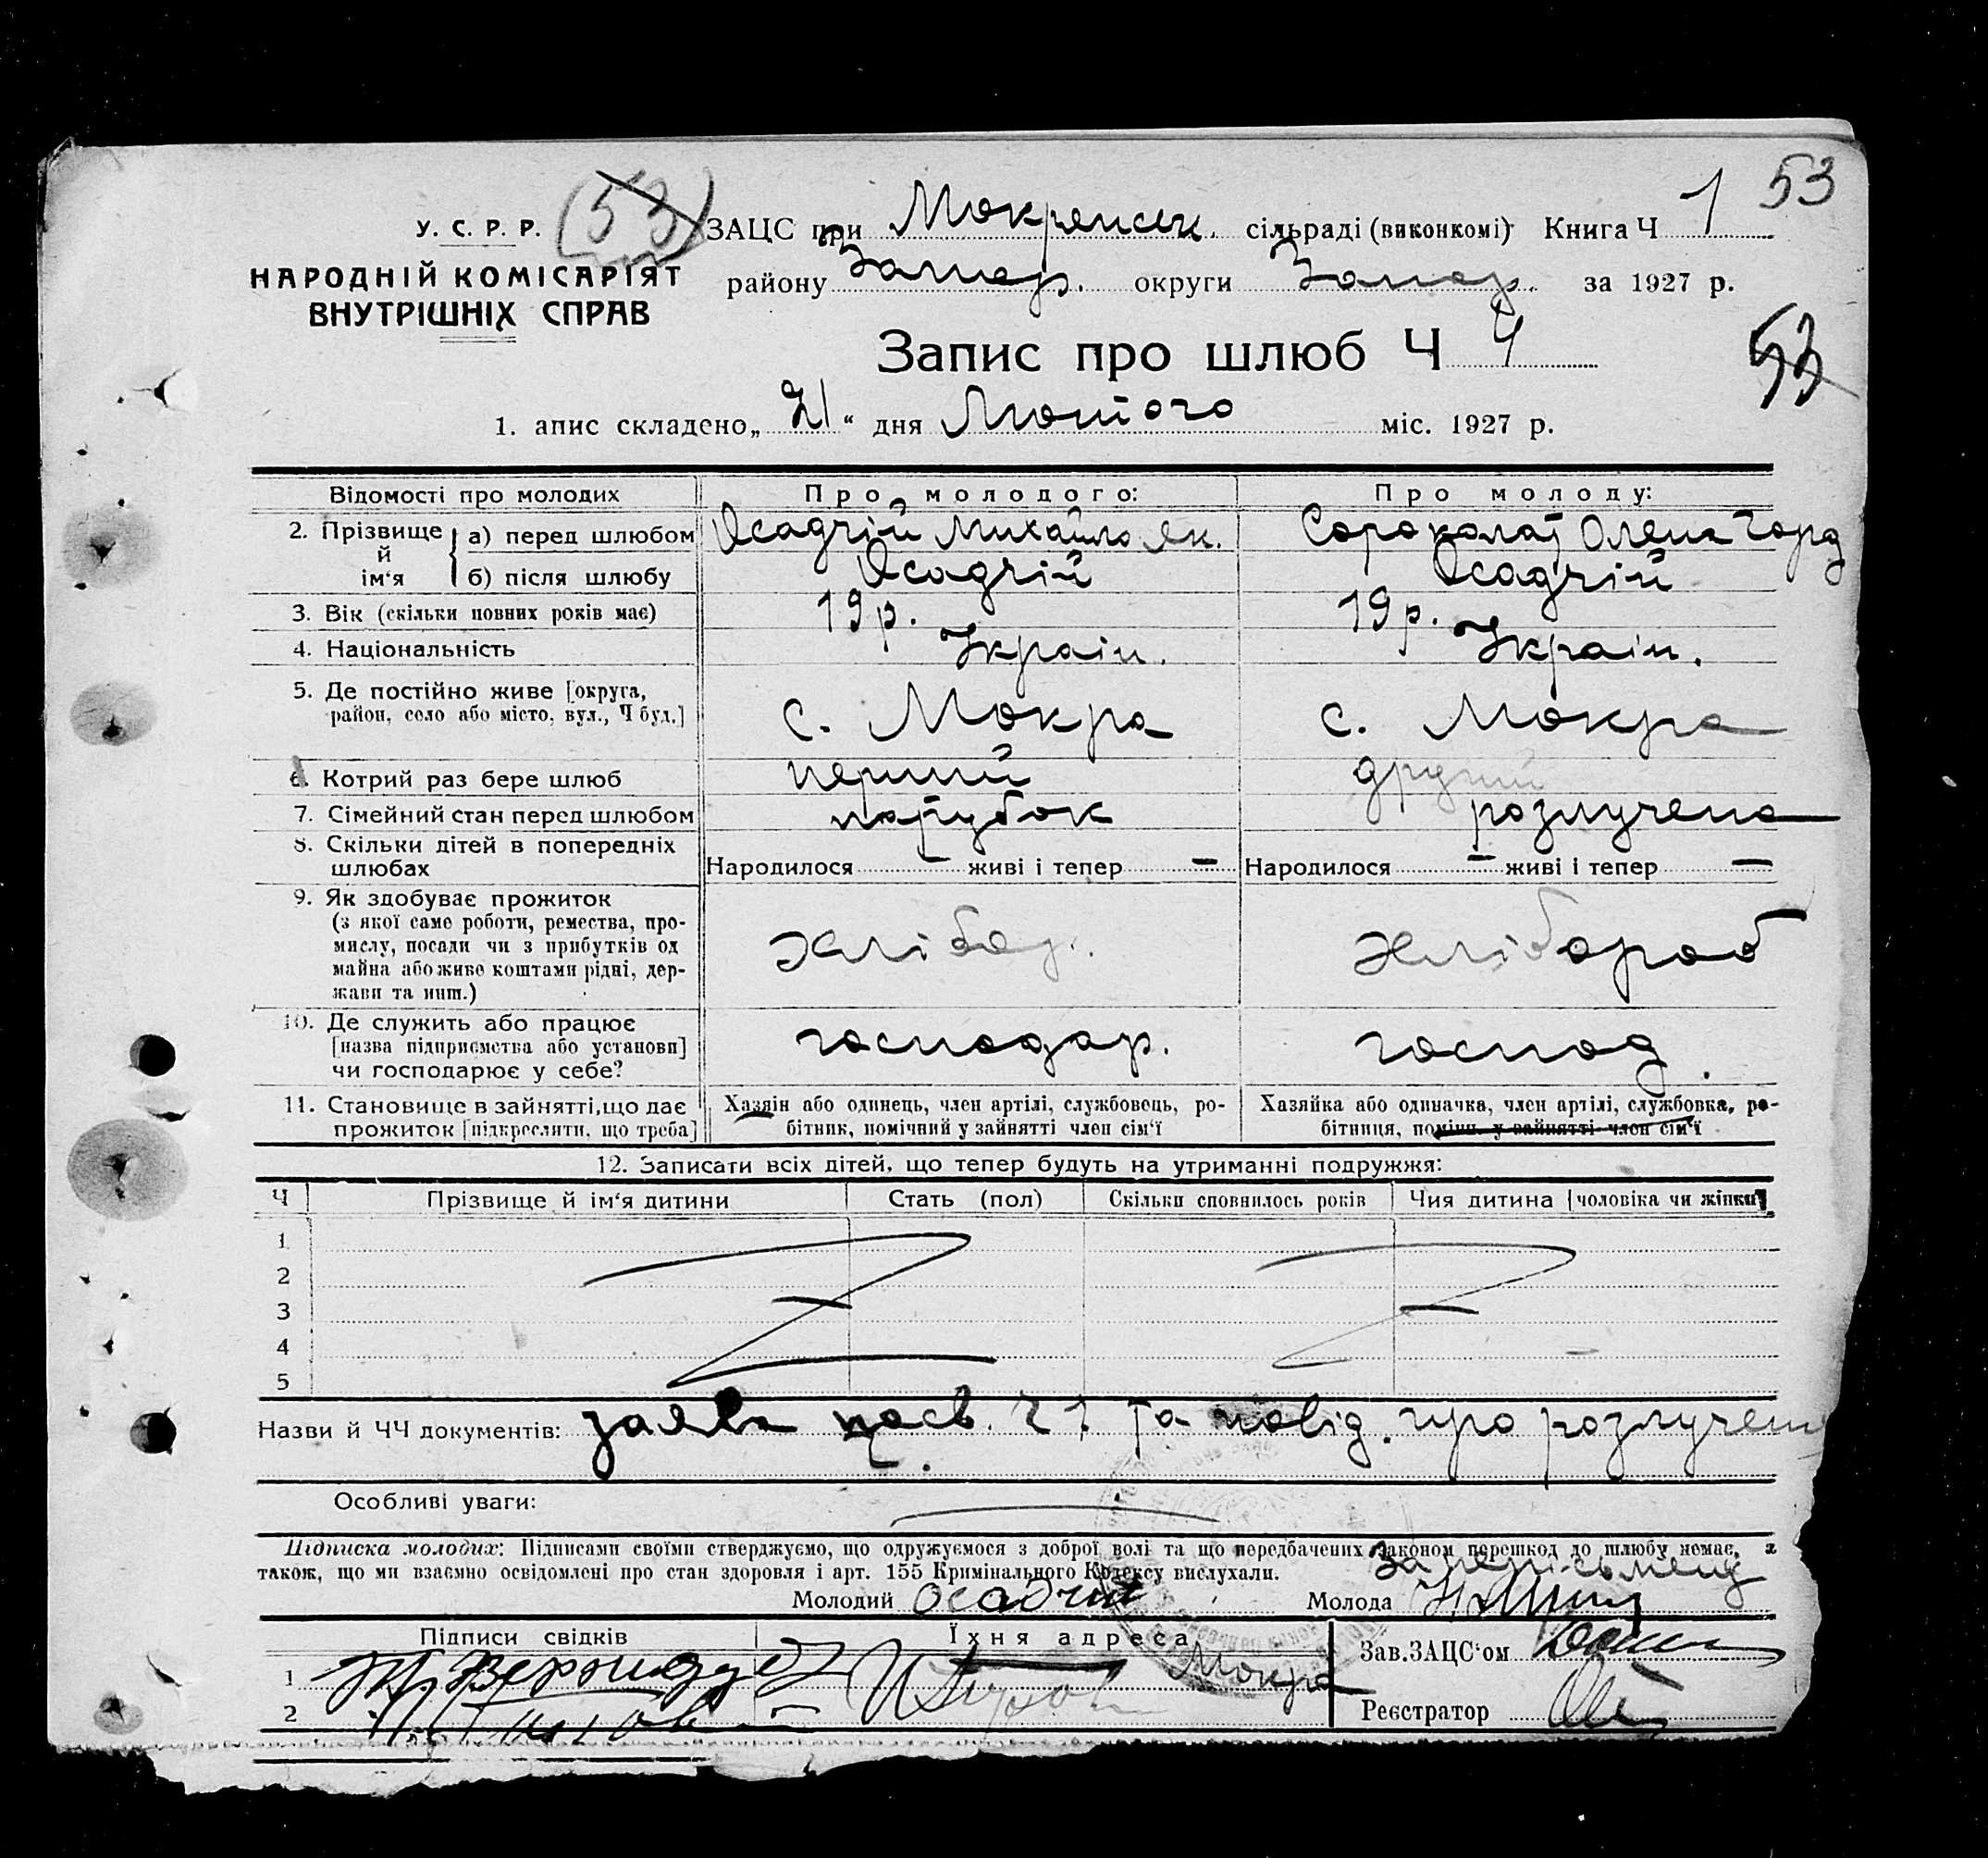 53
У. С. Р. Р. (53) ЗАЦС при Мокрянськ. сільраді (виконкомі) Книга Ч 1
НАРОДНІЙ КОМІСАРІЯТ району Запор. округи Запор. за 1927 р.
ВНУТРІШНІХ СПРАВ
Запис про шлюб Ч 4
53
1. апис складено „21“ дня Лютого міс. 1927 р.
Відомості про молодих Про молодого: Про молоду:
2. Прізвище й ім‘я а) перед шлюбом Осадчій Михайло Як. Сороколат Олена Горд
б) після шлюбу Осадчій Осадчій
3. Вік (скільки повних років має) 19 р. 19 р.
4. Національність Україн. Україн.
5. Де постійно живе [округа,
район, село або місто, вул., Ч буд.] с. Мокра с. Мокра
6. Котрий раз бере шлюб перший другий
7. Сімейний стан перед шлюбом парубок розлучена
8. Скільки дітей в попередніх
шлюбах Народилося — живі і тепер — Народилося — живі і тепер —
9. Як здобуває прожиток
(з якої саме роботи, ремества, про-
мислу, посади чи з прибутків од хлібор. хлібороб
майна або живе коштами рідні, дер-
жави та инш.)
10. Де служить або працює
[назва підприємства або установи] господар. господ.
чи господарює у себе?
11. Становище в зайнятті, що дає Хазяїн або одинець, член артілі, службовець, ро- Хазяйка або одиначка, член артілі, службовка, ро-
прожиток [підкреслити, що треба] бітник, помічний у зайнятті член сім‘ї бітниця, помічн. у зайнятті член сім‘ї
12. Записати всіх дітей, що тепер будуть на утриманні подружжя:
Ч Прізвище й ім‘я дитини Стать (пол) Скільки сповнилось років Чия дитина [чоловіка чи жінки]
1
2
3
4
5
Назви й ЧЧ документів: заява посв. Ч 1 та повід. про розлучен
Особливі уваги:
Підписка молодих: Підписами своїми стверджуємо, що одружуємося з доброї волі та що передбачених законом перешкод до шлюбу немає, а
також, що ми взаємно освідомлені про стан здоровля і арт. 155 Кримінального Кодексу вислухали. За неписьмену
Молодий Осадчий Молода
Підписи свідків Їхня адреса Зав. ЗАЦС‘ом
1 Мокра
2 Реєстратор